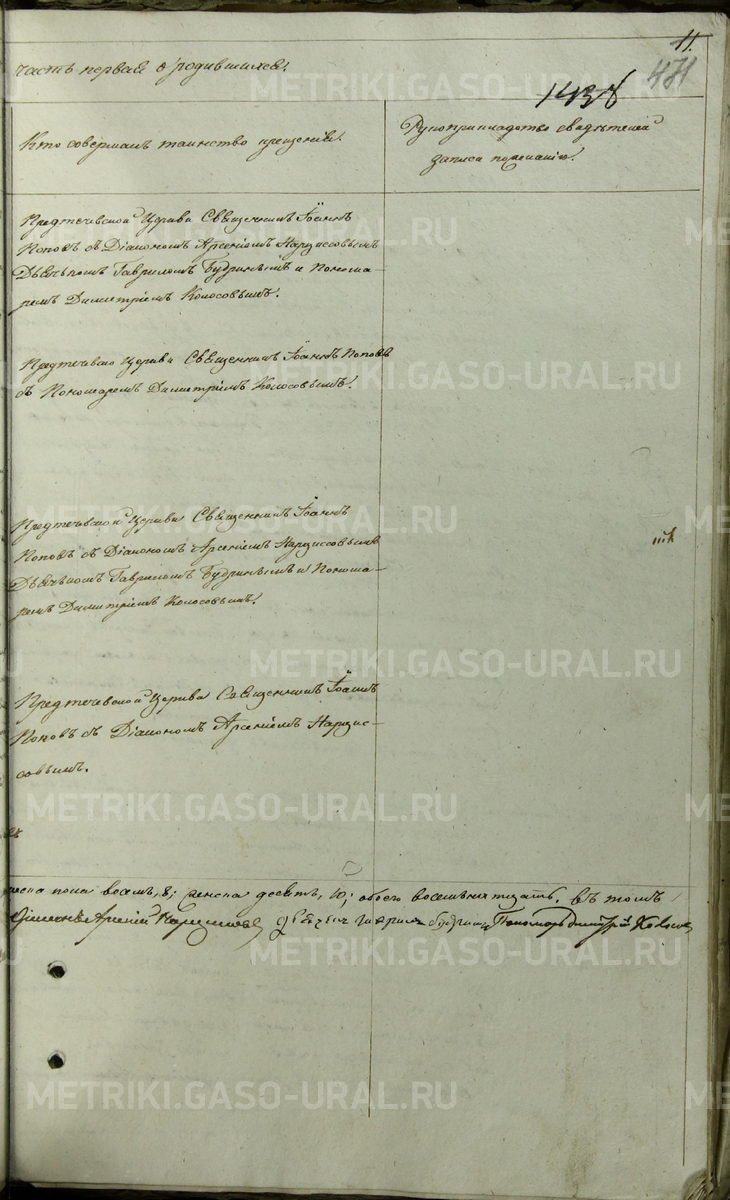 11.
471
1438
часть первая о родившихся.
Кто совершалъ таинство крещенія.
Рукоприкладство свидѣтелей
записи по желанію.
Предтечевской Церкви Священникъ Іоаннъ
Поповъ съ Діакономъ Арсеніемъ Нарциссовымъ
Дьячкомъ Гавриломъ Будринымъ и Понома-
ремъ Димитріемъ Колосовымъ.
Предтечевско Церкви Священникъ Іоаннъ Поповъ
съ Пономаремъ Димитріемъ Колосовымъ.
Предтечевской Церкви Священникъ Іоаннъ
Поповъ съ Діакономъ Арсеніемъ Нарциссовымъ
Дьячкомъ Гавриломъ Будринымъ и Понома-
ремъ Димитріемъ Колосовымъ.
Предтечевской Церкви Священникъ Іоаннъ
Поповъ съ Діакономъ Арсеніемъ Нарцис-
совымъ.
пола восемь, 8; женска десять, 10; обоего восемьнатцать. Въ томъ
Діаконъ Арсеній Нарциссовъ Дьячекъ Гаврила Будринъ Пономарь Димитрій Колосовъ
METRIKI.GASO-URAL.RU